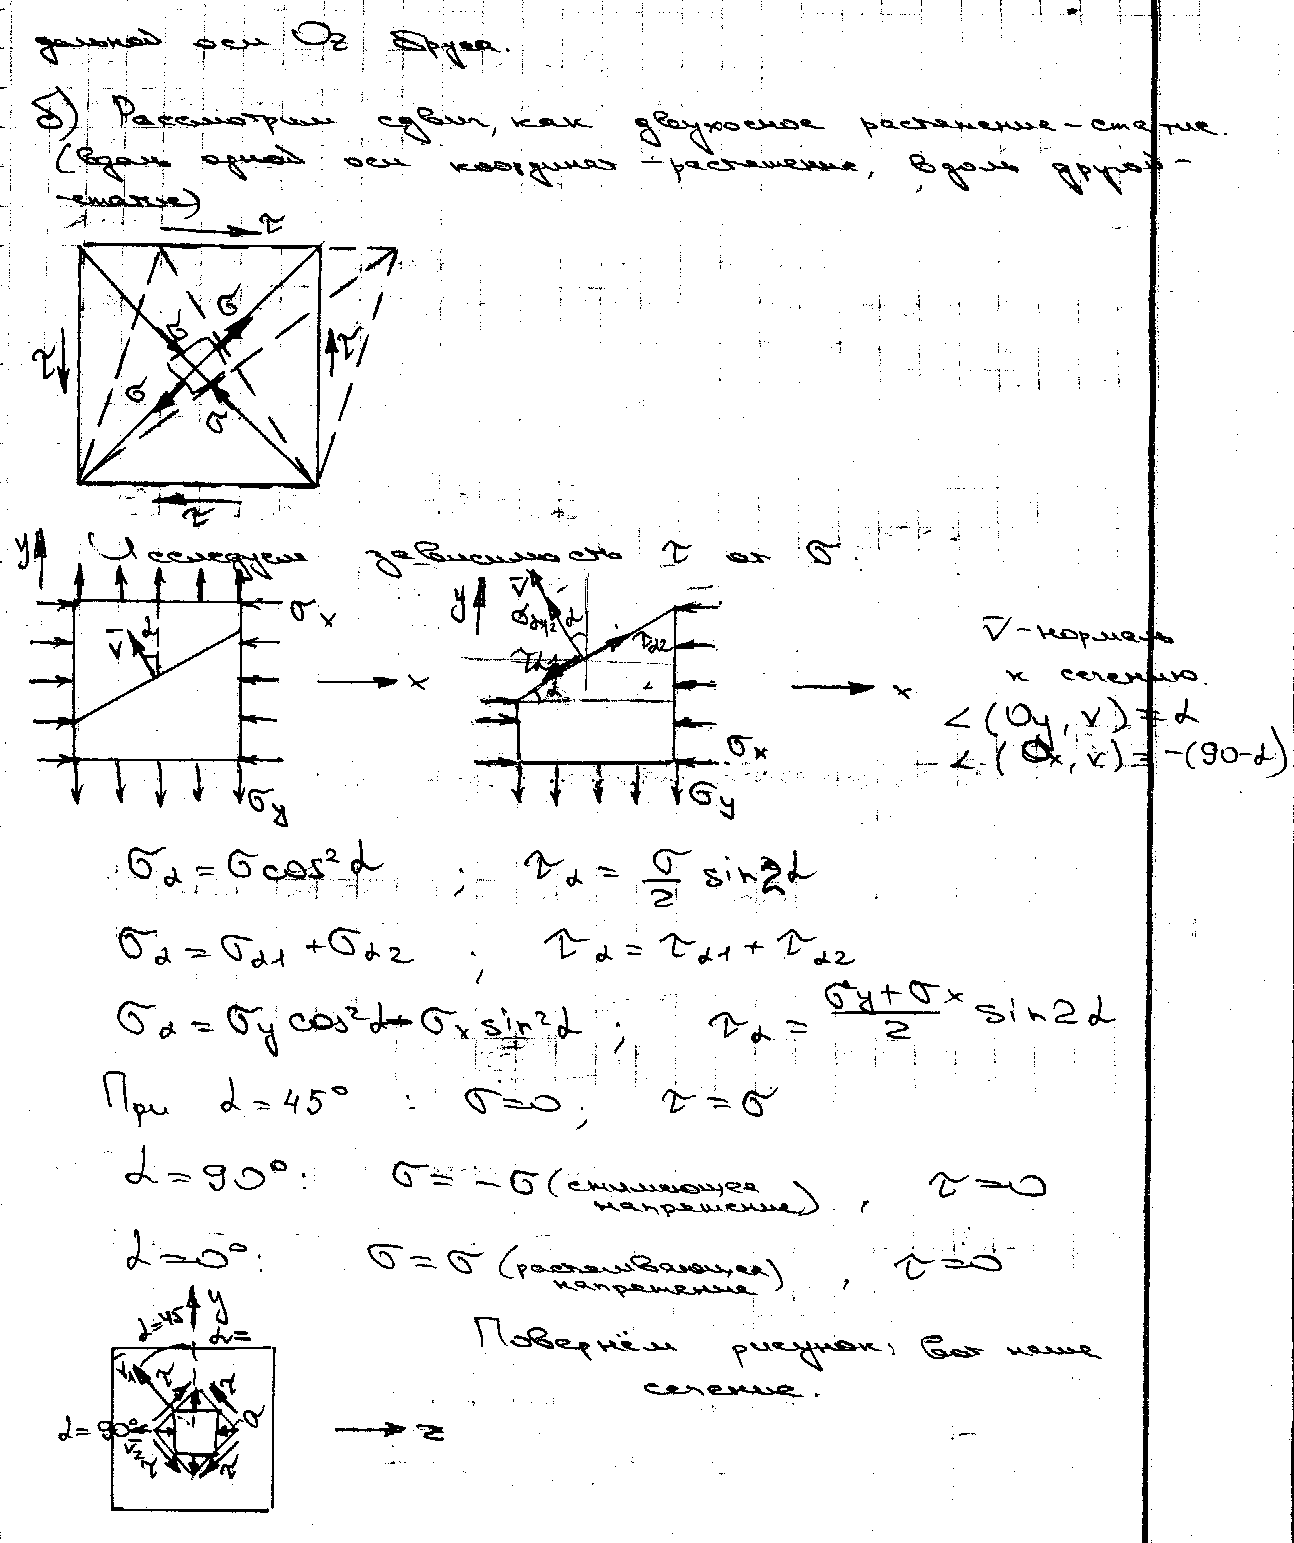 дольной оси Oz бруса.
б) Рассмотрим сдвиг, как двухосное растяжение-сжатие.
(вдоль одной оси координат - растяжение, вдоль другой -
-сжатие)
τ
σ
σ
τ
τ
σ
σ
τ
Исследуем зависимость τ от σ.
y
σx
α
v̄
x
σy
y
v̄
α
τα2
α
x
σx
σy
v̄ - нормаль
к сечению.
∠(Oy, v) = α
∠(Ox, v) = -(90-α)
σα = σ cos²α ; τα = σ/2 sin2α
σα = σα1 + σα2 ; τα = τα1 + τα2
σα = σy cos²α - σx sin²α ; τα = (σy + σx)/2 sin2α
При α = 45° : σ = 0 ; τ = σ
α = 90° : σ = -σ (сжимающее напряжение) , τ = 0
α = 0° : σ = σ (растягивающее напряжение) , τ = 0
Повернём рисунок: Вот наше
сечение.
y
α=45
α=
τ
τ
σ
α = 90°
τ
τ
z